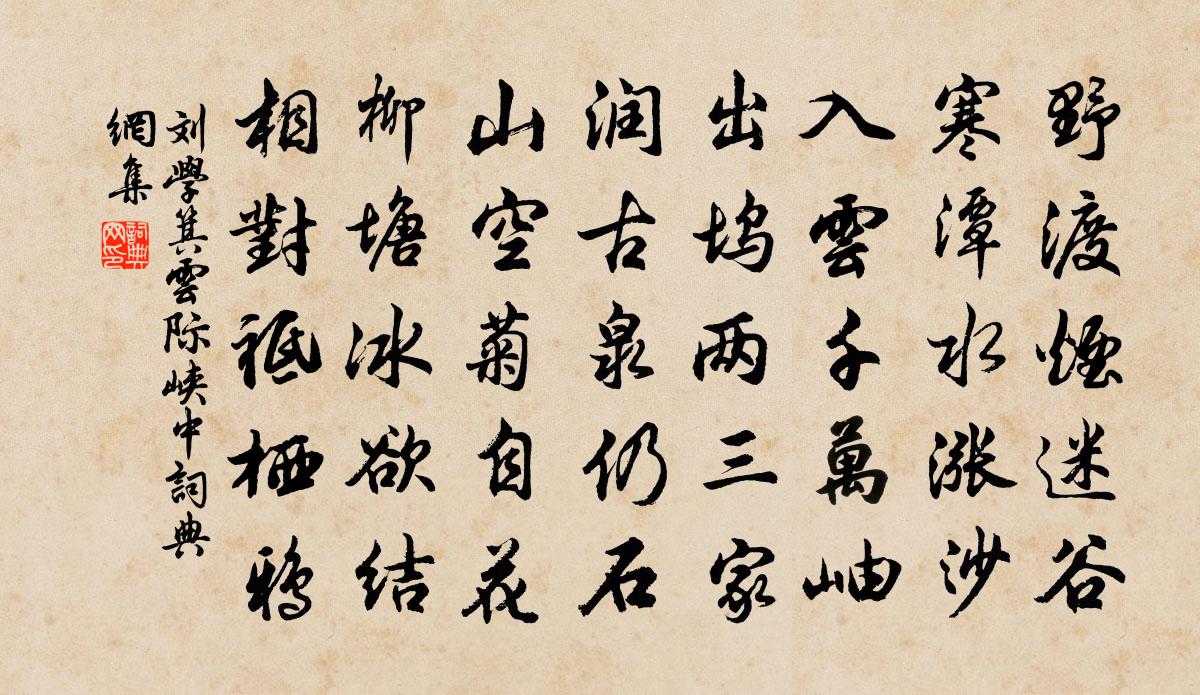 野渡煙迷谷
寒潭水漲沙
入雲千萬岫
出坞两三家
润古泉仍石
山空菊自花
柳塘冰欲结
相對祗栖鴉
刘學箕雲际峡中詞典
網集
詞典网印